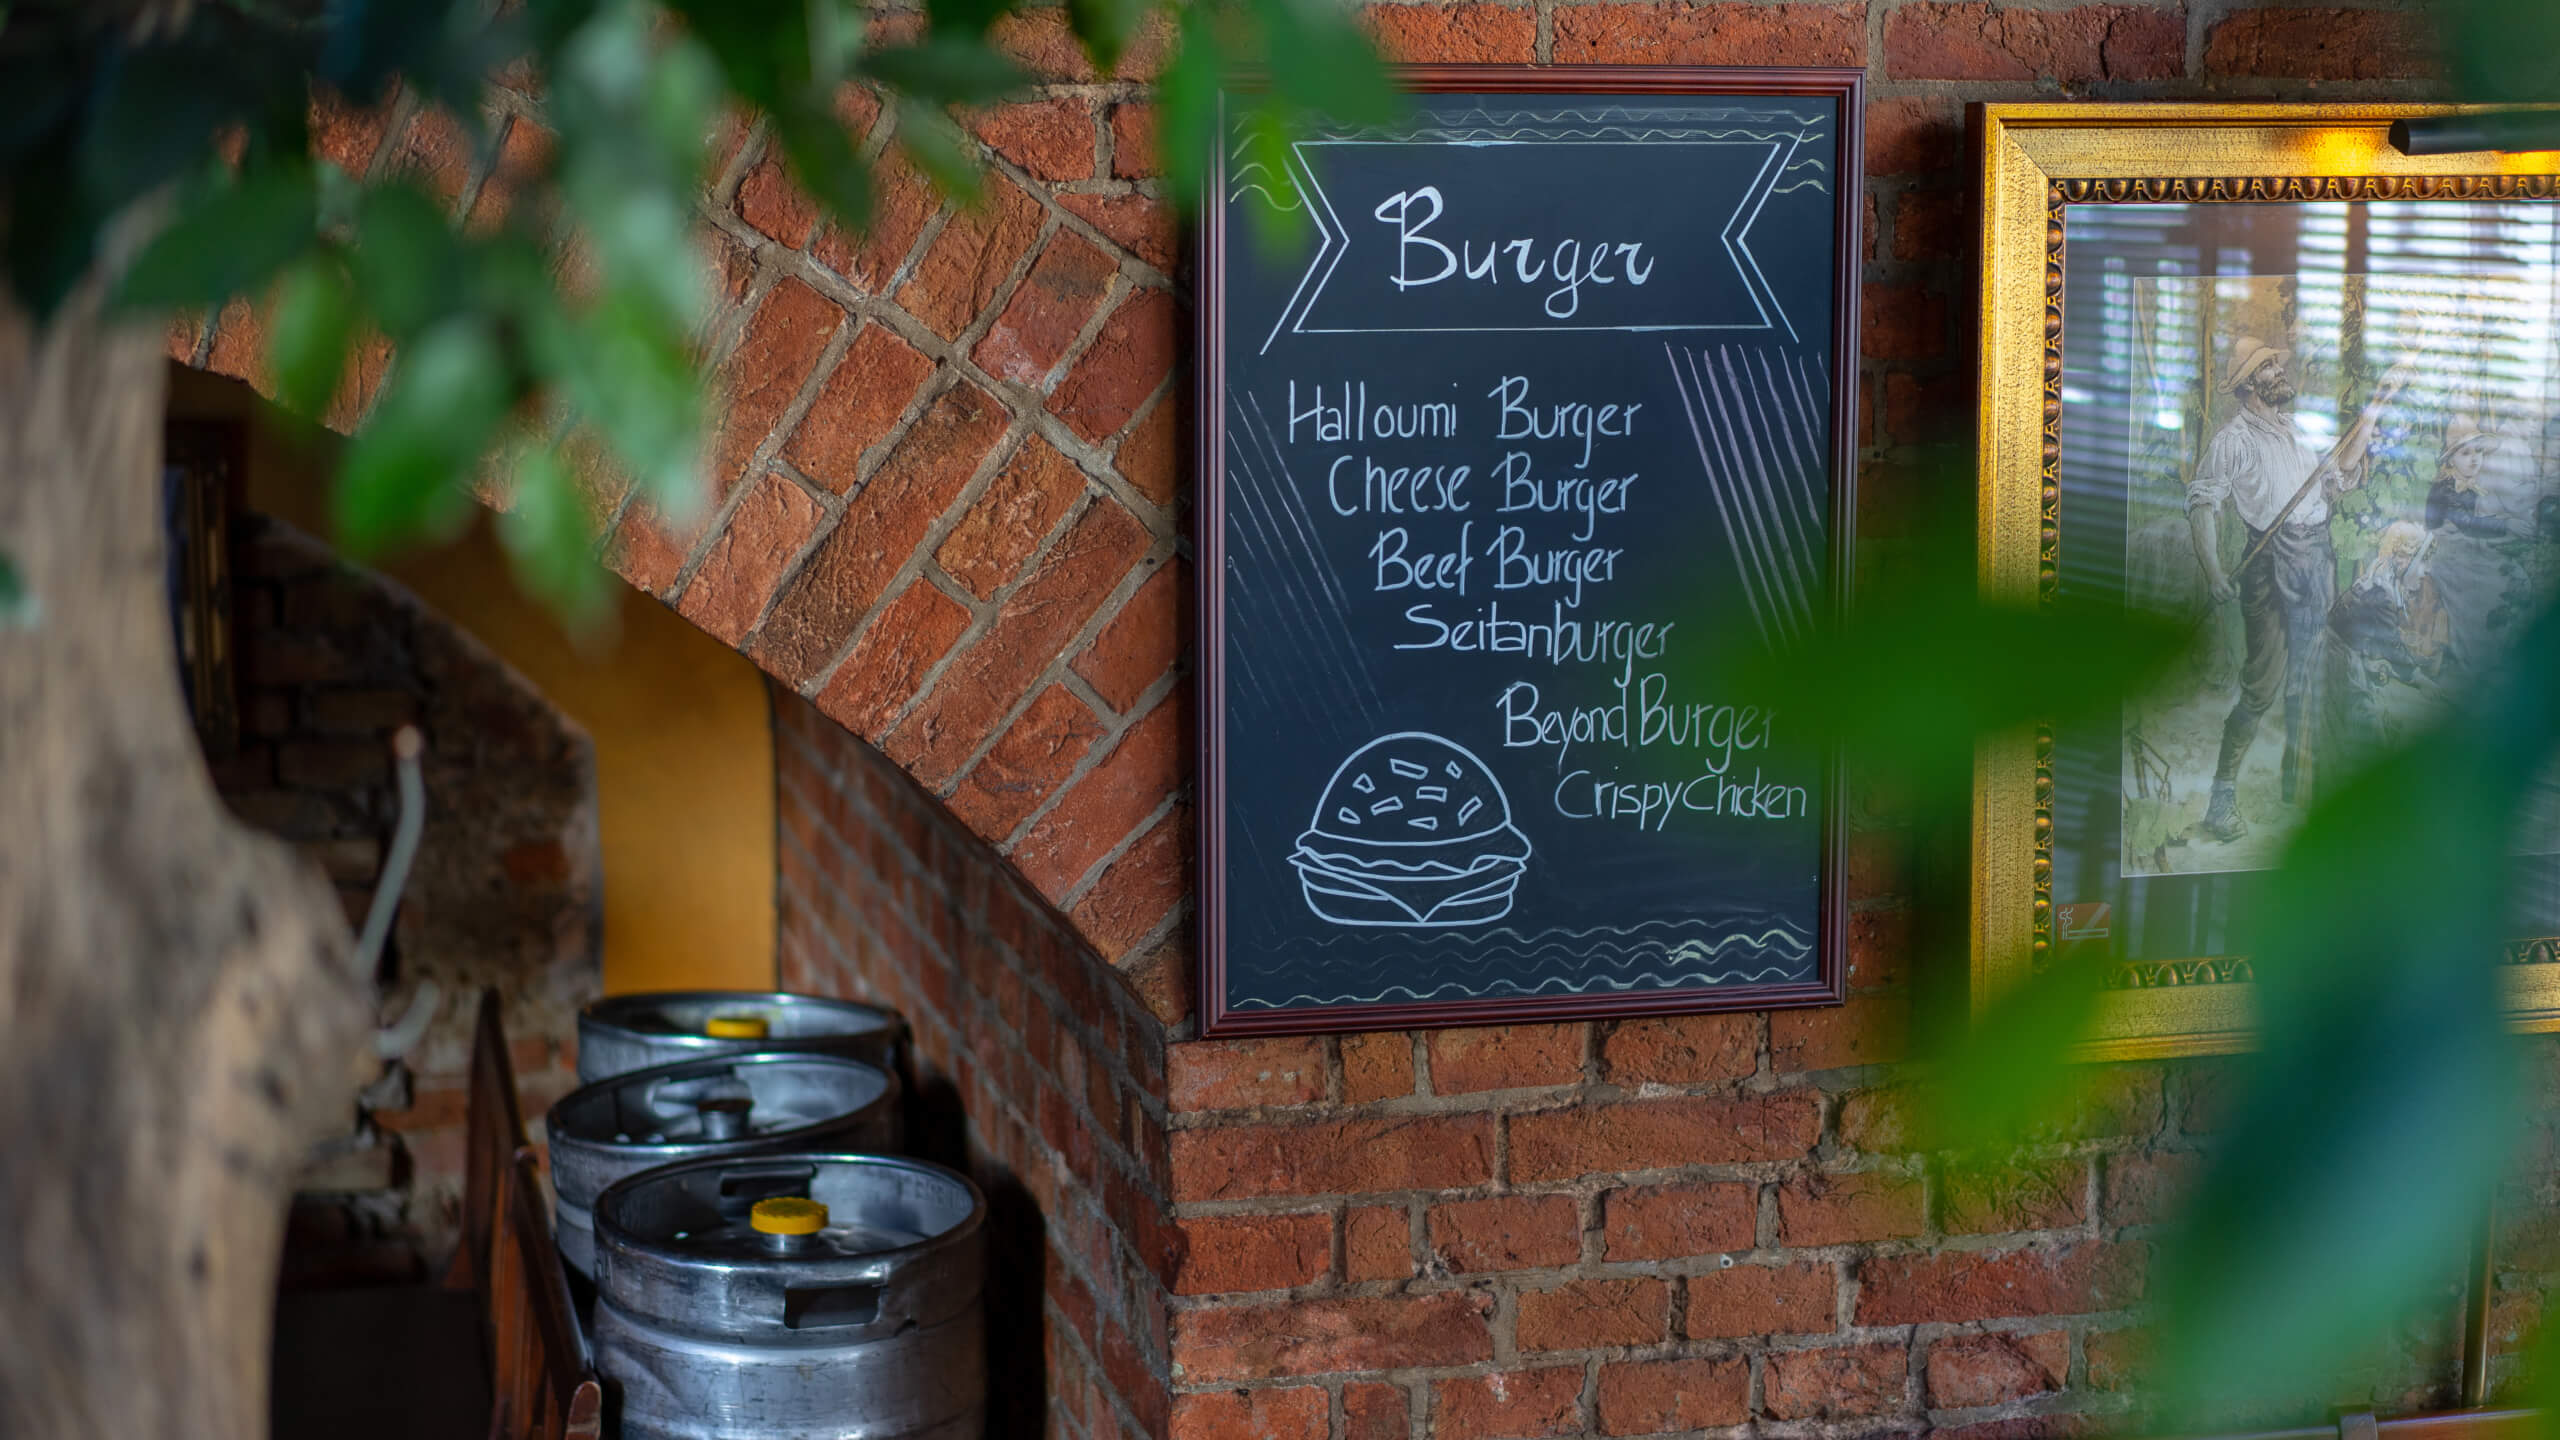 Burger
Halloumi Burger
Cheese Burger
Beef Burger
Seitanburger
Beyond Burger
Crispy Chicken